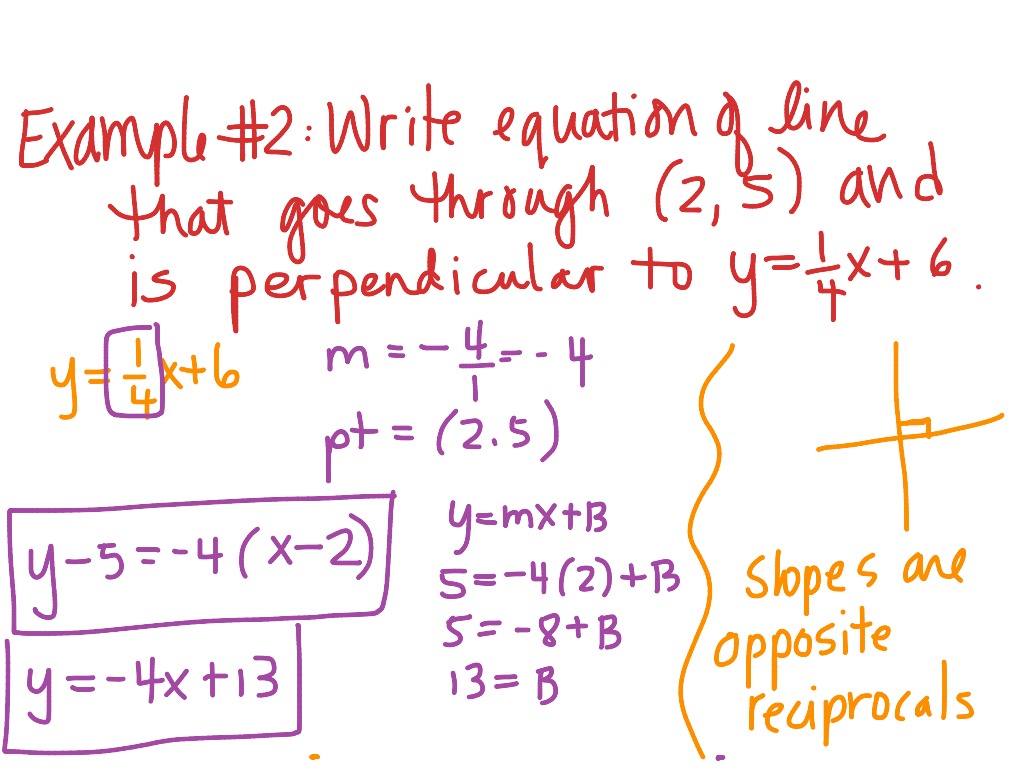 Example #2: Write equation of line
that goes through (2, 5) and
is perpendicular to y = 1/4 x + 6.
y = 1/4 x + 6
m = - 4/1 = - 4
pt = (2.5)
y - 5 = -4 (x - 2)
y = -4x + 13
y = mx + B
5 = -4(2) + B
5 = -8 + B
13 = B
slopes are
opposite
reciprocals